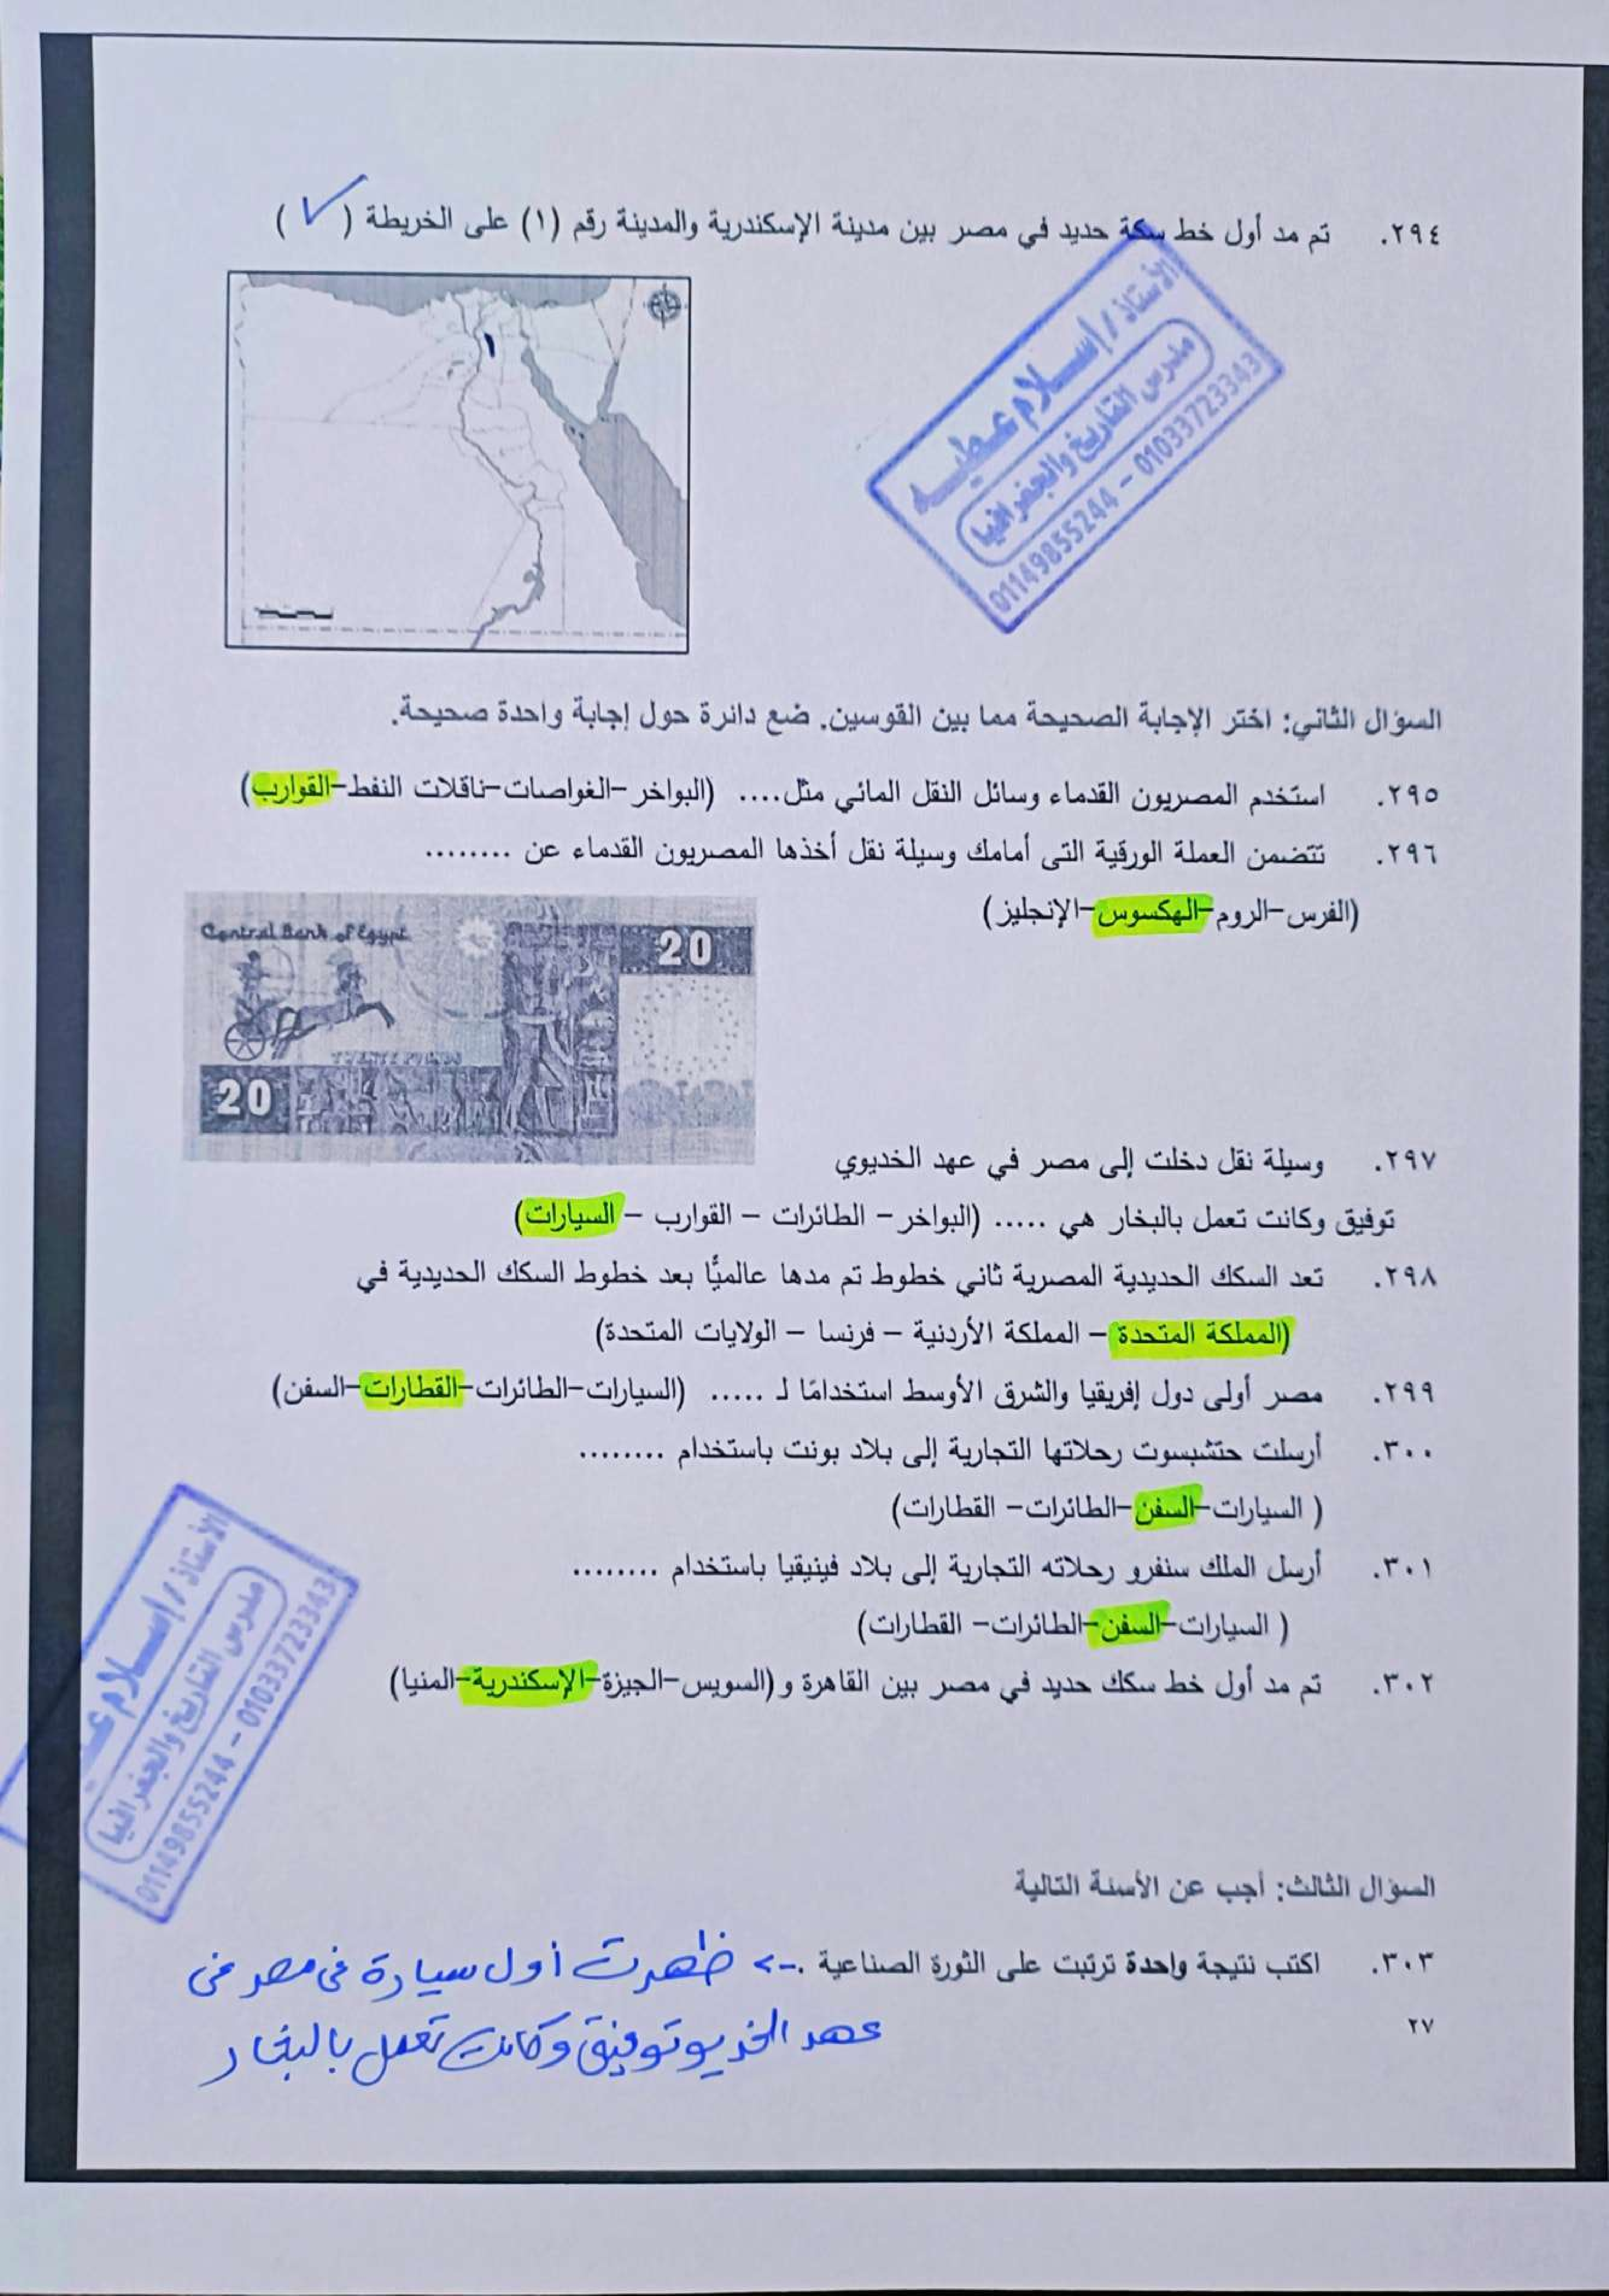 ٢٩٤. تم مد أول خط سكة حديد في مصر بين مدينة الإسكندرية والمدينة رقم (١) على الخريطة (✓)
١
الأستاذ / إسلام عطيه
مدرس التاريخ والجغرافيا
01149855244 - 01033723343
السؤال الثاني: اختر الإجابة الصحيحة مما بين القوسين. ضع دائرة حول إجابة واحدة صحيحة.
٢٩٥. استخدم المصريون القدماء وسائل النقل المائي مثل.... (البواخر-الغواصات-ناقلات النفط-القوارب)
٢٩٦. تتضمن العملة الورقية التى أمامك وسيلة نقل أخذها المصريون القدماء عن ........
(الفرس-الروم-الهكسوس-الإنجليز)
Central Bank of Egypt
20
TWENTY POUNDS
20
٢٩٧. وسيلة نقل دخلت إلى مصر في عهد الخديوي
توفيق وكانت تعمل بالبخار هي ..... (البواخر - الطائرات - القوارب - السيارات)
٢٩٨. تعد السكك الحديدية المصرية ثاني خطوط تم مدها عالميًّا بعد خطوط السكك الحديدية في
(المملكة المتحدة - المملكة الأردنية - فرنسا - الولايات المتحدة)
٢٩٩. مصر أولى دول إفريقيا والشرق الأوسط استخدامًا لـ ..... (السيارات-الطائرات-القطارات-السفن)
٣٠٠. أرسلت حتشبسوت رحلاتها التجارية إلى بلاد بونت باستخدام ........
( السيارات-السفن-الطائرات- القطارات)
٣٠١. أرسل الملك سنفرو رحلاته التجارية إلى بلاد فينيقيا باستخدام ........
( السيارات-السفن-الطائرات- القطارات)
٣٠٢. تم مد أول خط سكك حديد في مصر بين القاهرة و (السويس-الجيزة-الإسكندرية-المنيا)
الأستاذ / إسلام
مدرس التاريخ والجغرافيا
01149855244 - 01033723343
السؤال الثالث: أجب عن الأسئلة التالية
٣٠٣. اكتب نتيجة واحدة ترتبت على الثورة الصناعية .-> ظهرت أول سيارة فى مصر فى
عهد الخديو توفيق وكانت تعمل بالبخار
٢٧